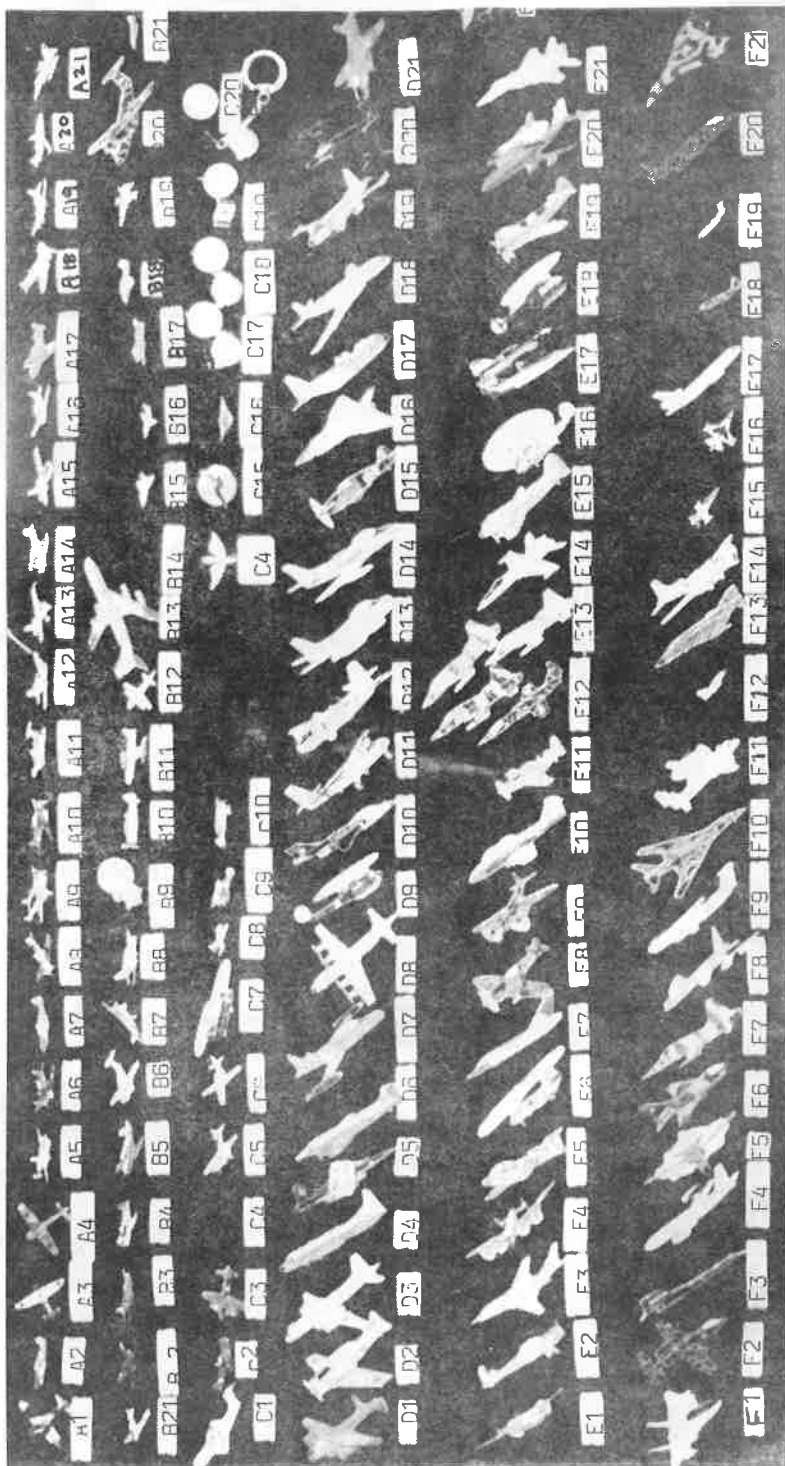 A1 A2 A3 A4 A5 A6 A7 A9 A9 A10 A11 A12 A13 A14 A15 C16 A17 A18 A19 A20 A21
B21 B3 B4 B5 B6 B7 B8 B9 B10 B11 B12 B13 B14 B15 B16 B17 B18 B19 B20 B21
C1 C2 C3 C4 C5 C6 C7 C8 C9 C10 C4 C15 C16 C17 C18 C19 C20
D1 D2 D3 D4 D5 D6 D7 D8 D9 D10 D11 D12 D13 D14 D15 D16 D17 D18 D19 D20 D21
E1 E2 E3 E4 E5 E6 E7 E8 E9 E10 E11 E12 E13 E14 E15 E16 E17 E18 E19 E20 E21
F1 F2 F3 F4 F5 F6 F7 F8 F9 F10 F11 F12 F13 F14 F15 F16 F17 F18 F19 F20 F21